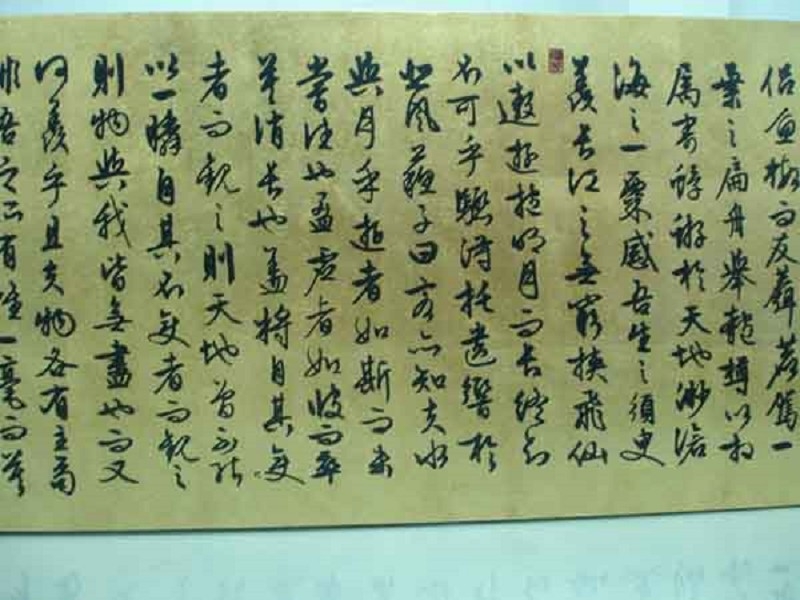 侶魚蝦而友麋鹿駕一
葉之扁舟舉匏樽以相
屬寄蜉蝣於天地渺滄
海之一粟感吾生之須臾
羨長江之無窮挾飛仙
以遨遊抱明月而長終知
不可乎驟得托遺響於
悲風蘇子曰客亦知夫水
與月乎逝者如斯而未
嘗往也盈虛者如彼而卒
莫消長也蓋將自其變
者而觀之則天地曾不能
以一瞬自其不變者而觀之
則物與我皆無盡也而又
何羨乎且夫物各有主苟
非吾之所有雖一毫而莫